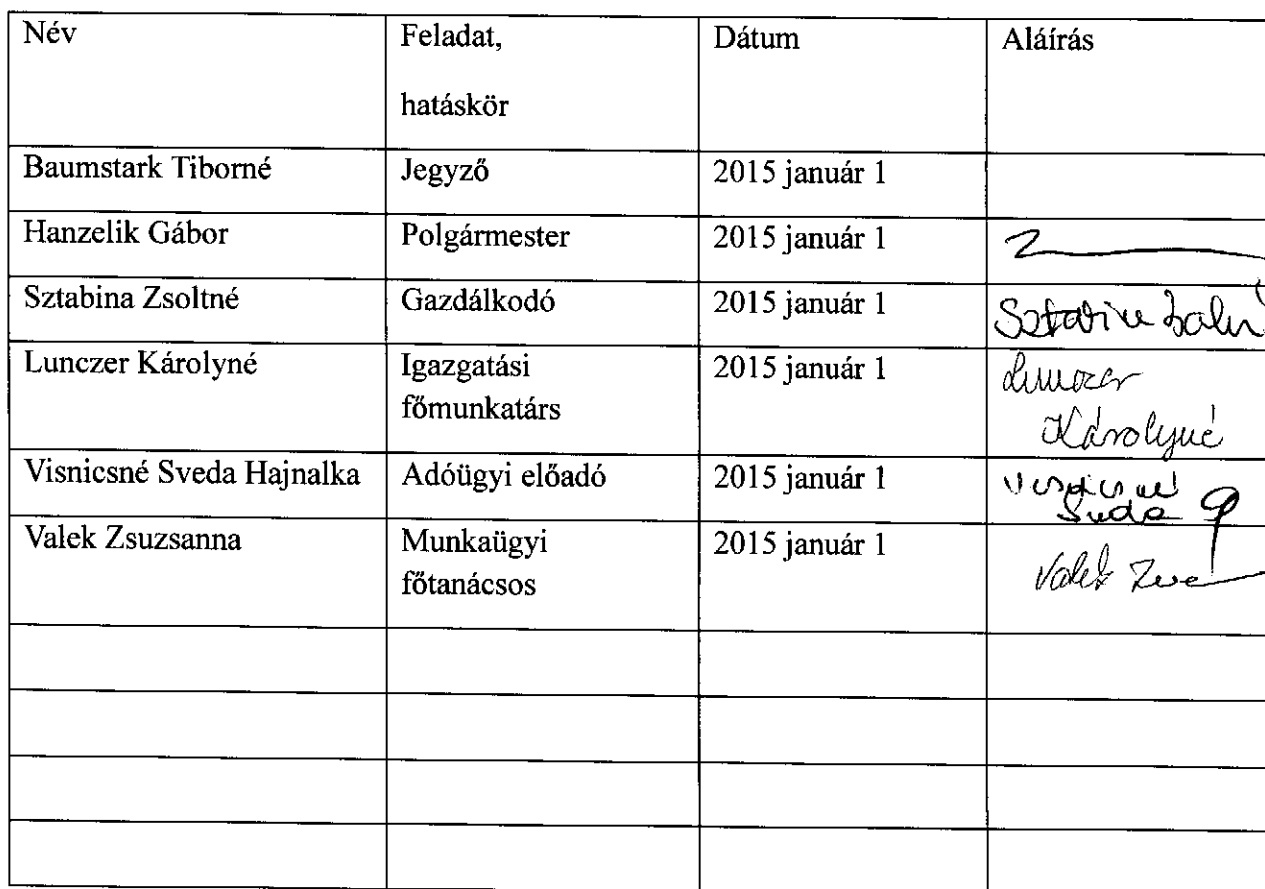 Név
Feladat,
hatáskör
Dátum
Aláírás
Baumstark Tiborné
Jegyző
2015 január 1
Hanzelik Gábor
Polgármester
2015 január 1
Sztabina Zsoltné
Gazdálkodó
2015 január 1
Lunczer Károlyné
Igazgatási
főmunkatárs
2015 január 1
Lunczer
Károlyné
Visnicsné Sveda Hajnalka
Adóügyi előadó
2015 január 1
Visnicsné
Sveda
Valek Zsuzsanna
Munkaügyi
főtanácsos
2015 január 1
Valek